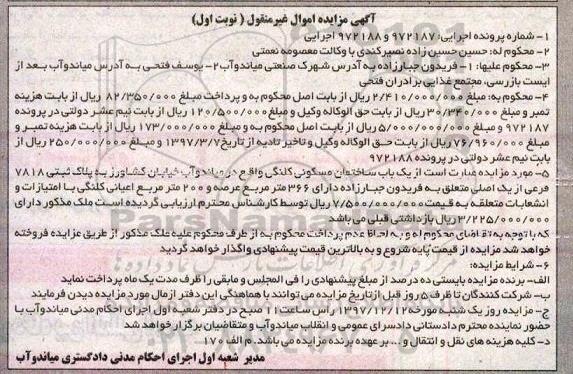 آگهی مزایده اموال غیرمنقول ( نوبت اول)
۱- شماره پرونده اجرایی: ۹۷۲۱۸۷ و ۹۷۲۱۸۸ اجرایی
۲- محکوم له: حسین حسین زاده نصیرکندی با وکالت معصومه نعمتی
۳- محکوم علیها: ۱- فریدون جبارزاده به آدرس شهرک صنعتی میاندوآب ۲- یوسف فتحی به آدرس میاندوآب بعد از
ایست بازرسی، مجتمع غذایی برادران فتحی
۴- محکوم به: مبلغ ۲/۴۱۰/۰۰۰/۰۰۰ ریال از بابت اصل محکوم به و پرداخت مبلغ ۸۲/۳۵۰/۰۰۰ ریال از بابت هزینه
تمبر و مبلغ ۳۰/۳۴۰/۰۰۰ ریال از بابت حق الوکاله وکیل و مبلغ ۱۲۰/۵۰۰/۰۰۰ ریال از بابت نیم عشر دولتی در پرونده
۹۷۲۱۸۷ و مبلغ ۵/۰۰۰/۰۰۰/۰۰۰ ریال از بابت اصل محکوم به و مبلغ ۱۷۳/۰۰۰/۰۰۰ ریال از بابت هزینه تمبر و
مبلغ ۷۶/۹۶۰/۰۰۰ ریال از بابت حق الوکاله وکیل و تاخیر تادیه از تاریخ ۱۳۹۷/۳/۷ و مبلغ ۲۵۰/۰۰۰/۰۰۰ ریال از
بابت نیم عشر دولتی در پرونده ۹۷۲۱۸۸
۵- مورد مزایده عبارت است از یک باب ساختمان مسکونی کلنگی واقع در میاندوآب خیابان کشاورز به پلاک ثبتی ۷۸۱۸
فرعی از یک اصلی متعلق به فریدون جبارزاده دارای ۳۶۶ متر مربع عرصه و ۲۰۰ متر مربع اعیانی کلنگی با امتیازات و
انشعابات متعلقه به قیمت ۷/۵۰۰/۰۰۰/۰۰۰ ریال توسط کارشناس محترم ارزیابی گردیده است ملک مذکور دارای
۳/۲۲۵/۰۰۰/۰۰۰ ریال بازداشتی قبلی می باشد
که با توجه به تقاضای محکوم له و به لحاظ عدم پرداخت محکوم به از طرف محکوم علیه ملک مذکور از طریق مزایده فروخته
خواهد شد مزایده از قیمت پایه شروع و به بالاترین قیمت پیشنهادی واگذار خواهد گردید
۶- شرایط مزایده:
الف- برنده مزایده بایستی ده درصد از مبلغ پیشنهادی را فی المجلس و مابقی را ظرف مدت یک ماه پرداخت نماید
ب- شرکت کنندگان تا ظرف ۵ روز قبل از تاریخ مزایده می توانند با هماهنگی این دفتر از مال مورد مزایده دیدن فرمایند
ج- مزایده روز یک شنبه مورخه ۱۳۹۷/۱۲/۱۲ راس ساعت ۱۱ صبح در دفتر شعبه اول اجرای احکام مدنی میاندوآب با
حضور نماینده محترم دادستانی دادسرای عمومی و انقلاب میاندوآب و متقاضیان برگزار خواهد شد
د- کلیه هزینه های نقل و انتقال و ... بر عهده برنده مزایده می باشد. م الف ۱۷۰
مدیر شعبه اول اجرای احکام مدنی دادگستری میاندوآب